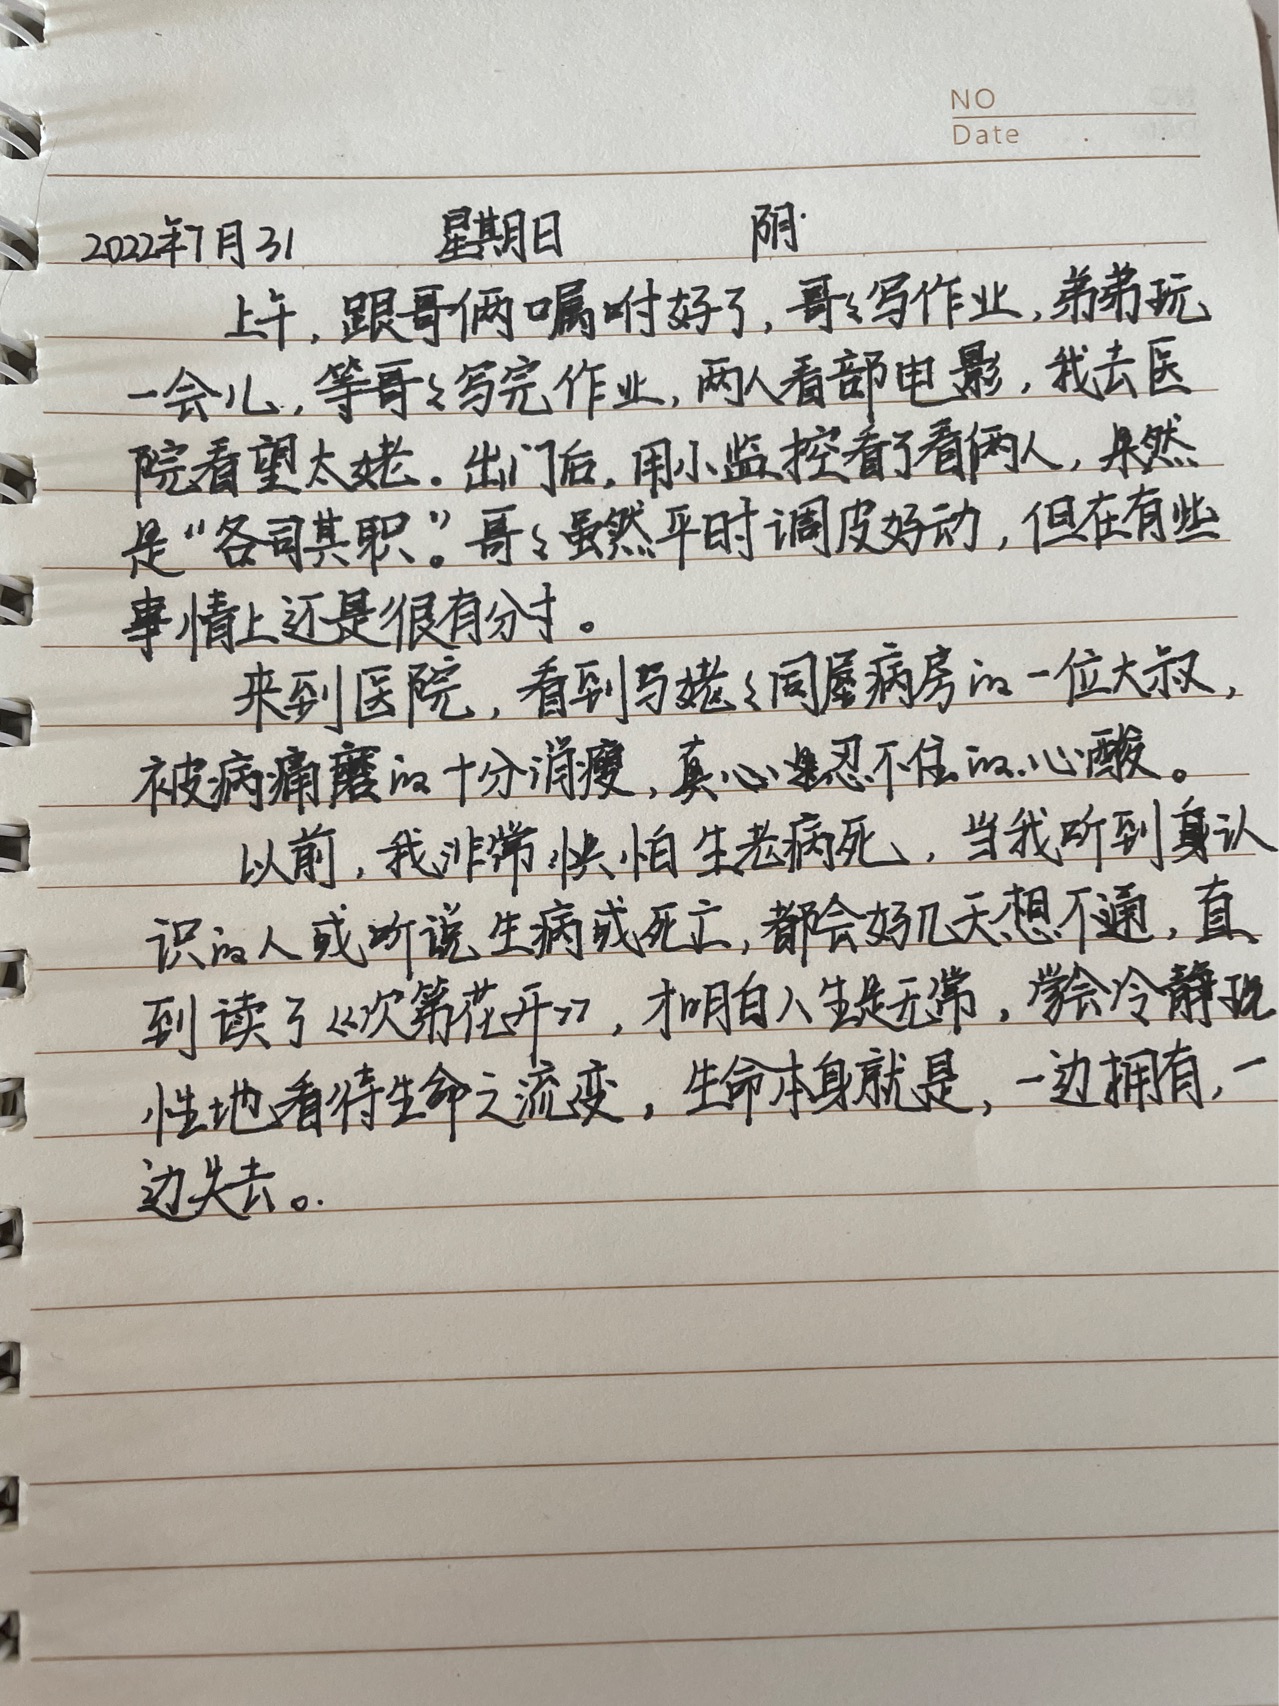 NO
Date
2022年7月31 星期日 阴.
上午，跟哥俩嘱咐好了，哥々写作业，弟弟玩
一会儿，等哥々写完作业，两人看部电影，我去医
院看望太姥。出门后，用小监控看了看俩人，果然
是“各司其职”。哥々虽然平时调皮好动，但在有些
事情上还是很有分寸。
来到医院，看到与姥々同屋病房的一位大叔，
被病痛磨的十分消瘦，真心是忍不住的心酸。
以前，我非常怏怕生老病死，当我听到身认
识的人或听说生病或死亡，都会好几天想不通，直
到读了《次第花开》，才明白人生是无常，学会冷静理
性地看待生命之流变，生命本身就是，一边拥有，一
边失去。